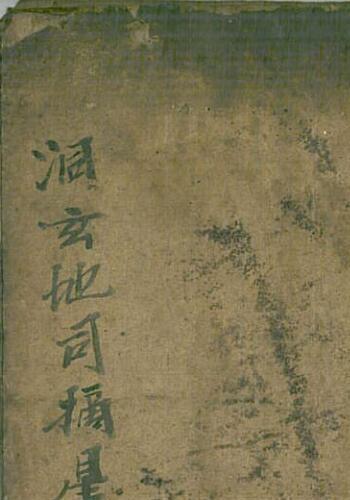 洞玄地司摘星